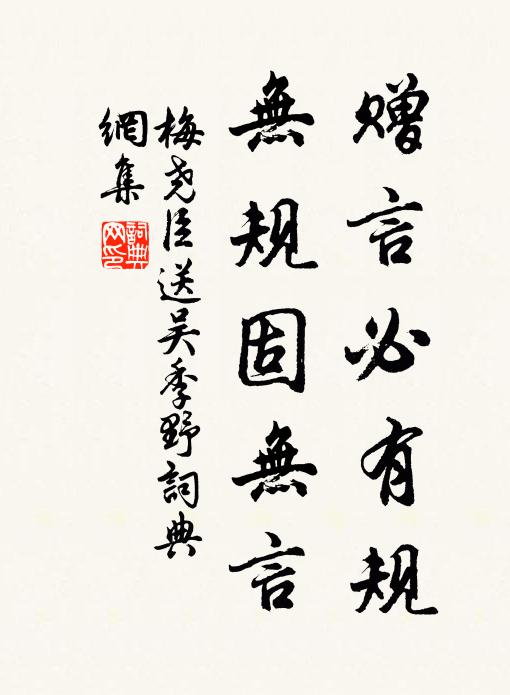 赠言必有规
無規固無言
梅尧臣送吴季野詞典
網集
詞典
网印